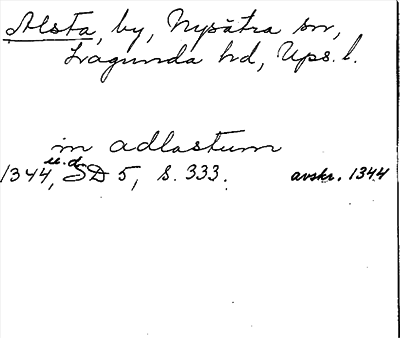 Alsta, by, Nysätra sn,
Lagunda hd, Ups. l.
in adlastum
1344 u.d., SD 5, s. 333. avskr. 1344